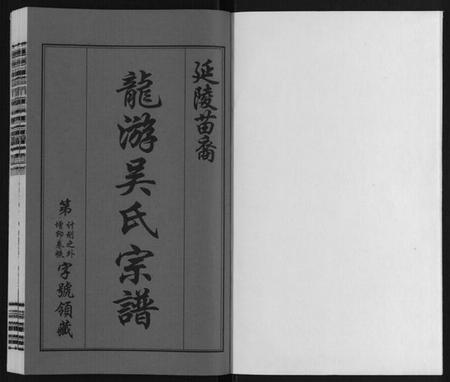 延陵苗裔
龍游吴氏宗譜
第計划之外增印卷帙字號領藏